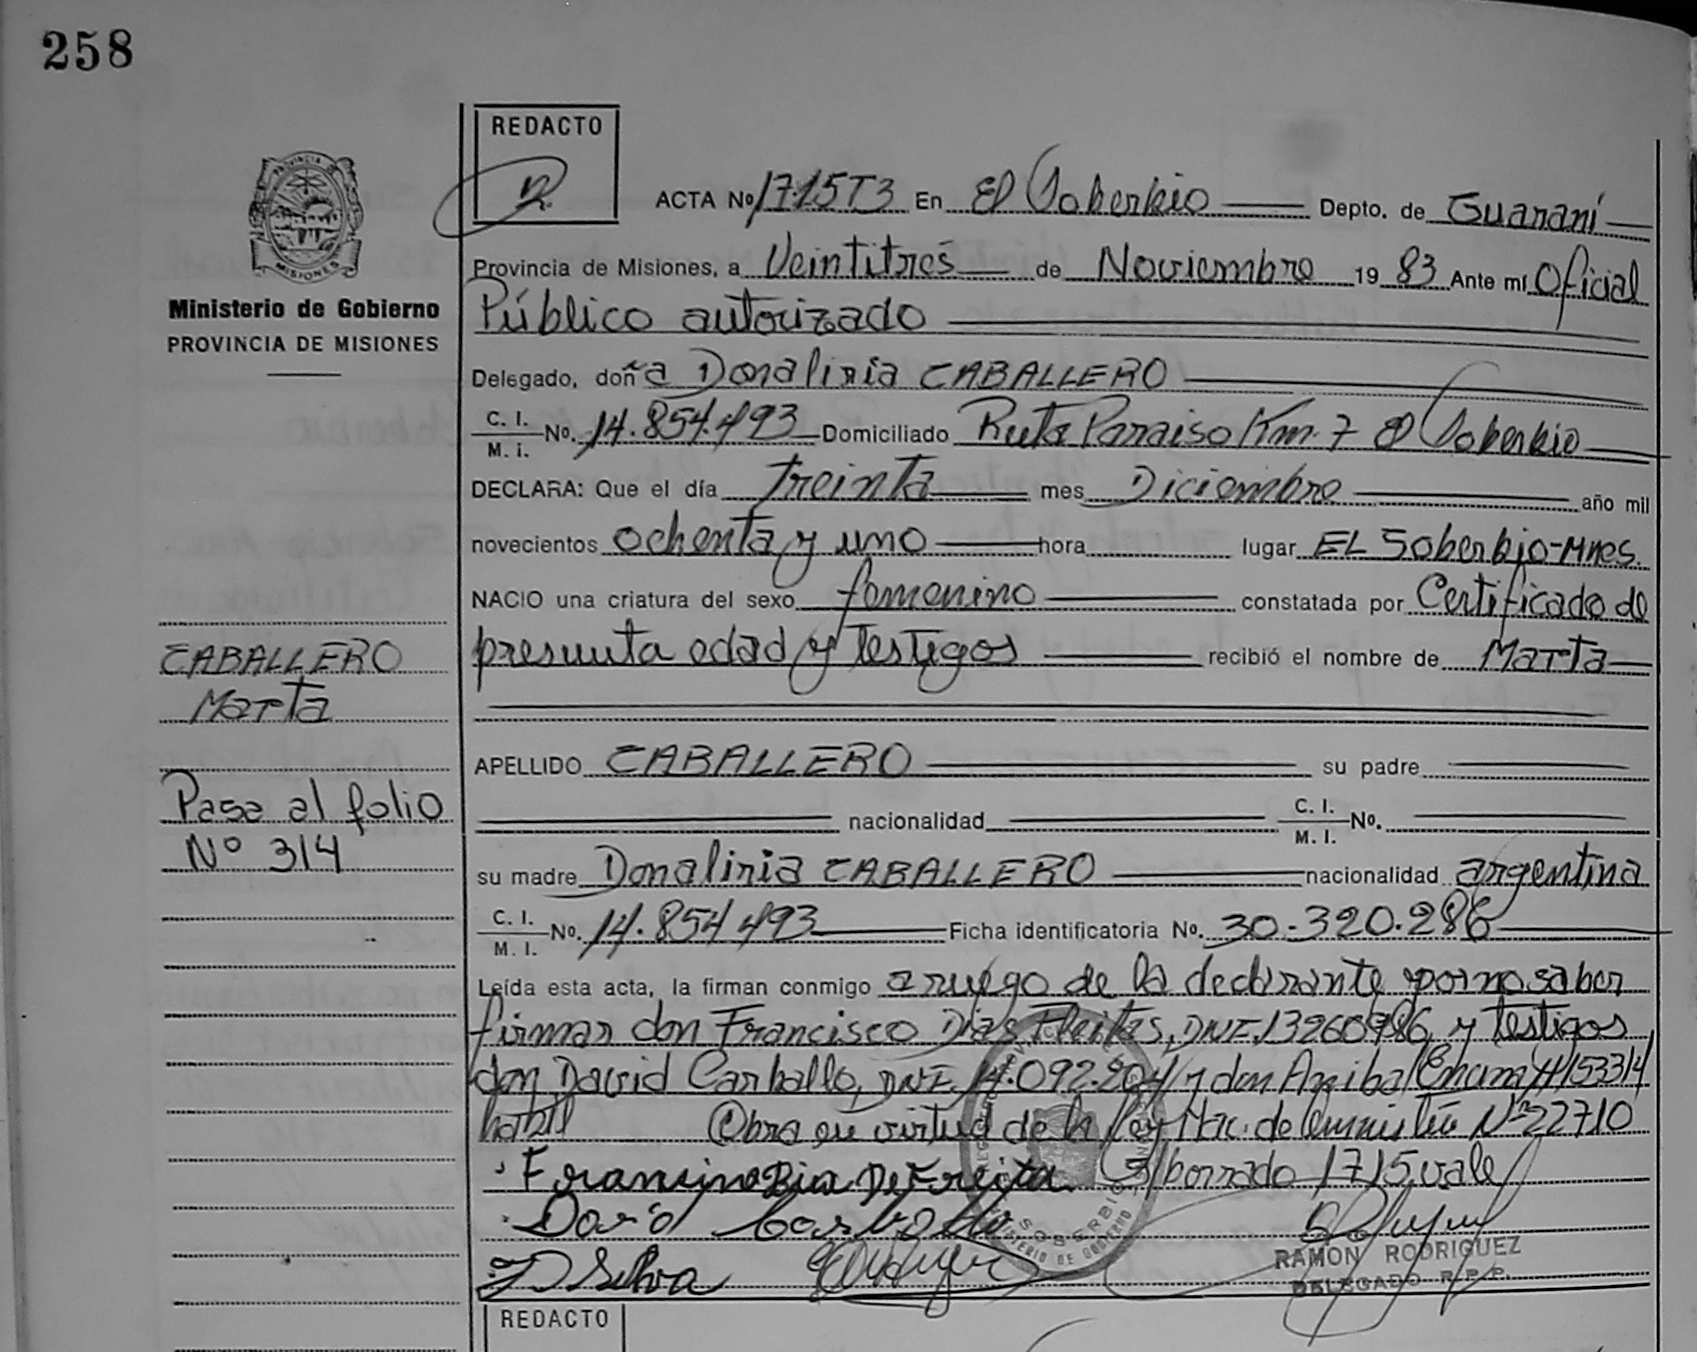 258
REDACTO
PROVINCIA DE
MISIONES
ACTA Nº 1715T3 En El Soberbio Depto. de Guaraní
Provincia de Misiones, a Veintitres de Noviembre 19 83 Ante mí Oficial
Público autorizado
Ministerio de Gobierno
PROVINCIA DE MISIONES
Delegado, doña Donalinia CABALLERO
C. I.
M. I. No. 14.854.493 Domiciliado Ruta Paraiso Km. 7 El Soberbio
DECLARA: Que el día treinta mes Diciembre año mil
novecientos ochenta y uno hora lugar EL Soberbio-Mnes.
NACIO una criatura del sexo femenino constatada por Certificado de
presunta edad y testigos recibió el nombre de Marta
CABALLERO
Marta
APELLIDO CABALLERO su padre
Pasa al folio
Nº 314
nacionalidad C. I. M. I. No.
su madre Donalinia CABALLERO nacionalidad argentina
C. I.
M. I. No. 14.854.493 Ficha identificatoria No. 30.320.286
Leída esta acta, la firman conmigo a ruego de la declarante por no saber
firmar don Francisco Dias Freitas, DNI. 13260986 y testigos
don David Carballo, DNI. 14.092.204 y don Anibal
habil Obra en virtud de la Ley Nac. de Amnistía Nº 22710
S/borrado 1715, vale
RAMON RODRIGUEZ
DELEGADO R.P.P.
SOBERBIO
MINISTERIO DE GOBIERNO
REDACTO